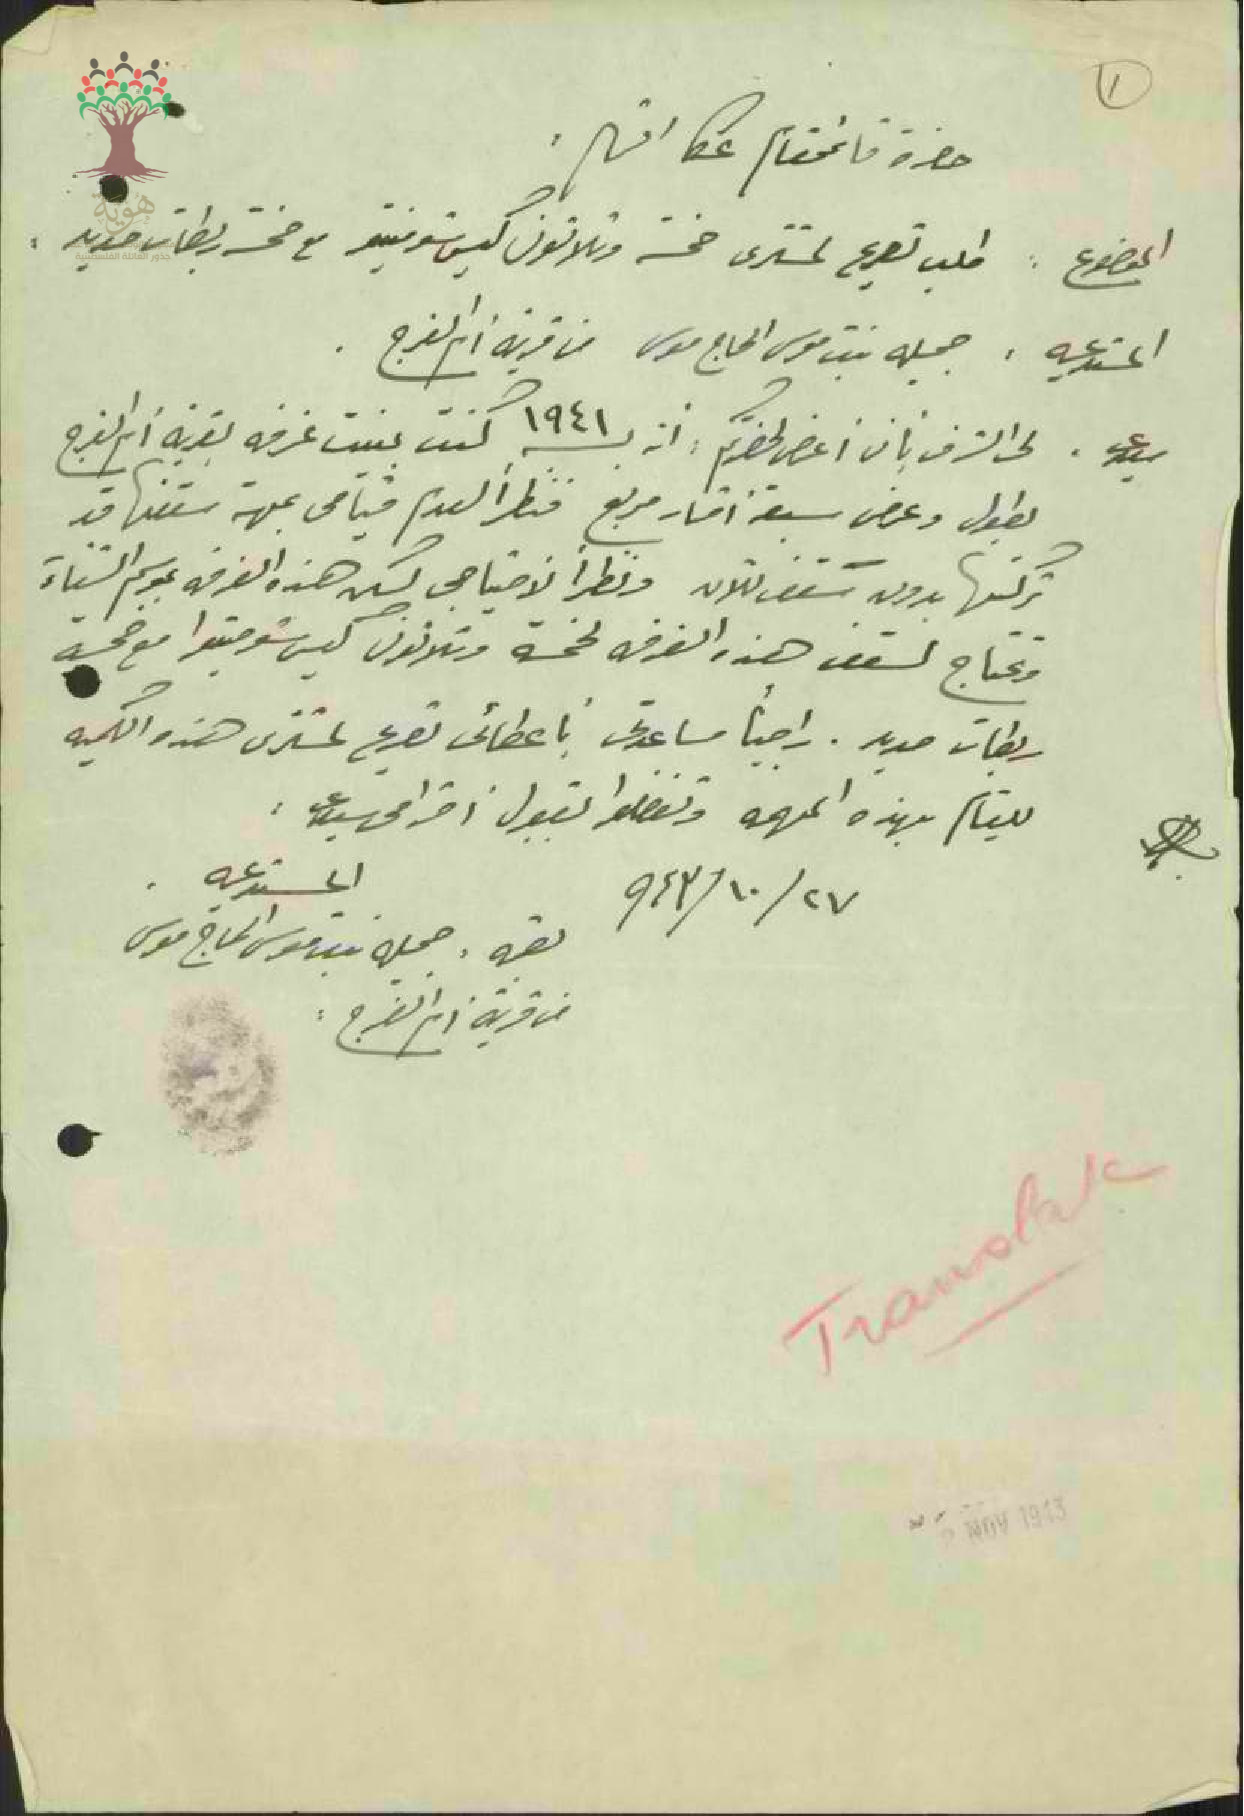 ١
حضرة قائمقام عكا الافخم
الموضوع : طلب تصريح لمشترى خمسة وثلاثون كيس شومينتو مع خمسة ربطات حديد :
المستدعيه : جميله بنت موسى الحاج موسى من قرية أم الفرج .
سيدي . لى الشرف بأن أعرض لحضرتكم : أنه بسنة ١٩٤١ كنت بنيت غرفه بقرية أم الفرج
بطول وعرض سبعة أمتار مربع فنظراً لعدم قيامى بمهمة سقفها قد
تركتها بدون سقف للآن ونظراً لاحتياجى لسكن هذه الغرفه بموسم الشتاء
وتحتاج لسقف هذه الغرفه لخمسة وثلاثون كيس شومينتوا مع خمسة
ربطات حديد . راجيتاً مساعدتى بأعطائى تصريح لمشترى هذه الكميه
للقيام بهذه المهمه وتفضلوا بقبول أحترامى سيدي :
٢٧/١٠/٩٤٣
المستدعيه .
بصمة . جميله بنت موسى الحاج موسى
من قرية أم الفرج :
هوية
جذور العائلة الفلسطينية
Translate
NOV 1943